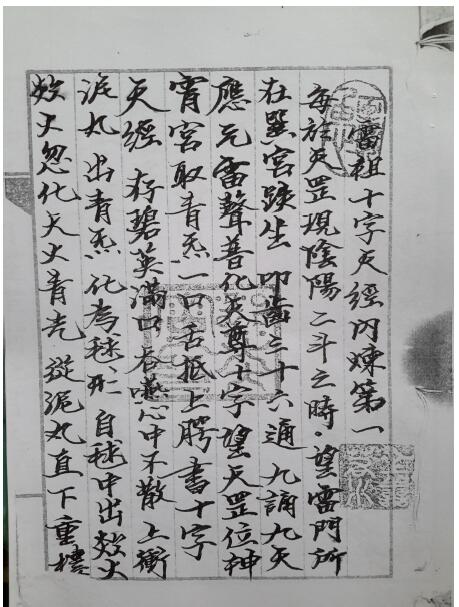 雷祖十字天經內煉第一
每於天罡現陰陽二斗之時，望雷門所
在巽宮趺坐 叩齒三十六通 九誦九天
應元雷聲普化天尊十字 望天罡位神
霄宮取青炁一口 舌抵上腭 書十字
天經 存碧英滿口 吞嚥心中不散 上衝
泥丸 出青炁 化為毬形 自毬中出欻火
欻火忽化天大青光 從泥丸直下重樓